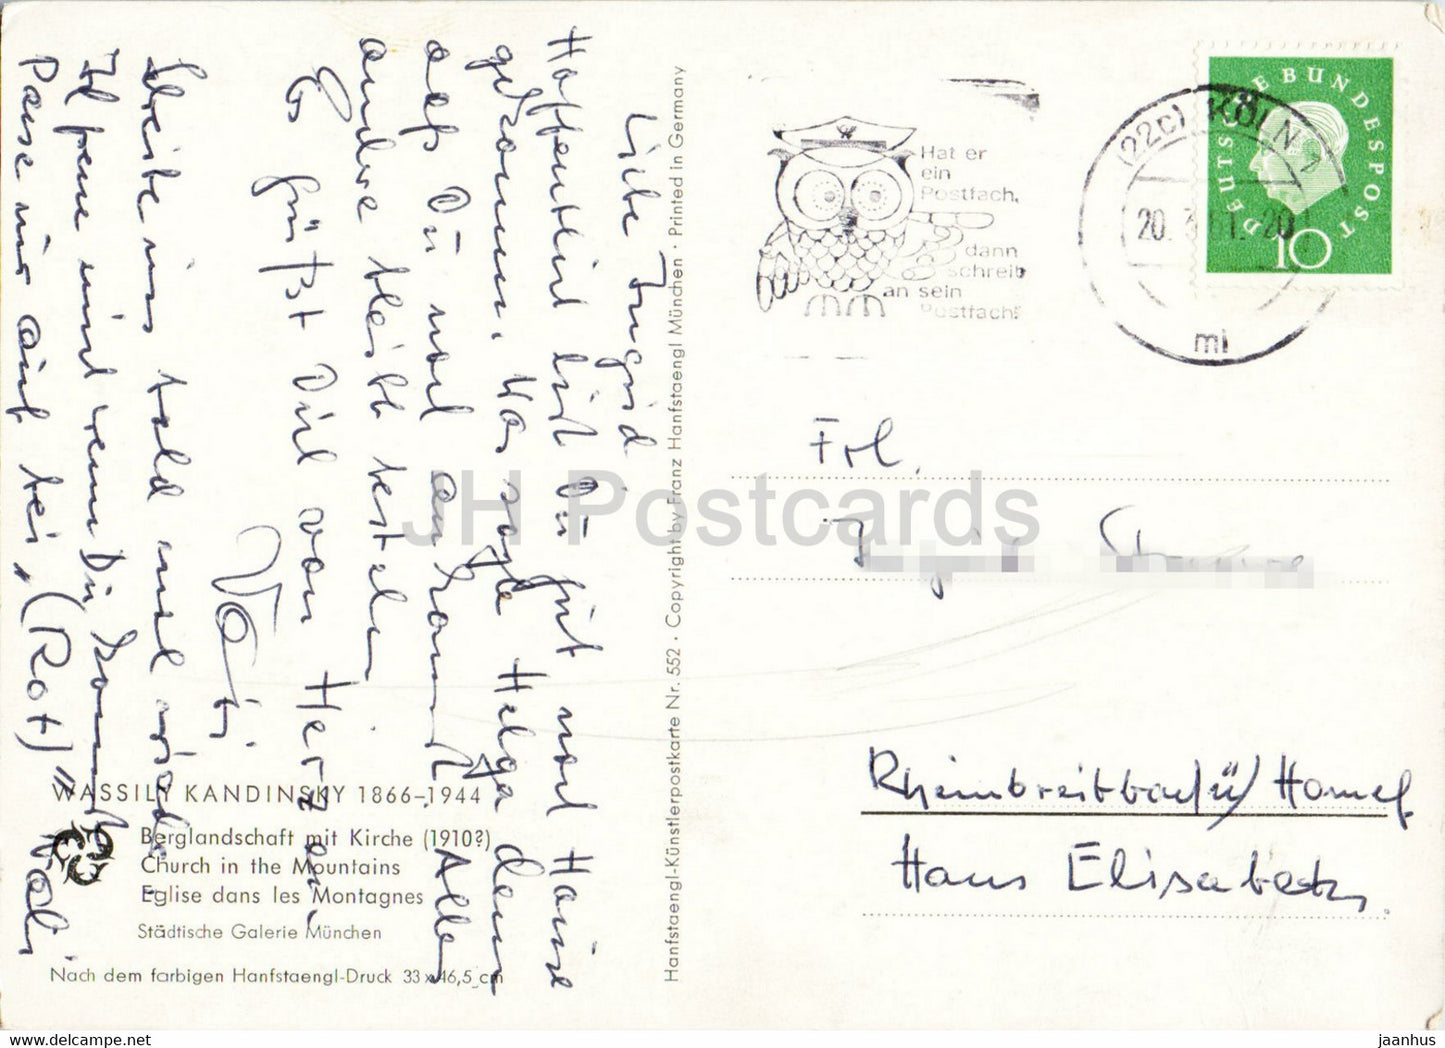 Liebe Ingrid
Hoffentlich bist Du gut nach Hause
gekommen. Was sagte Helga denn
daß Du noch an kamst. Alles
andere bleibt bestehen
Es grüßt Dich von Herzen
Vati.
Schreibe uns bald mal wieder
Ich freue mich wenn Du kommst
Pause nur auf bei „(Rot)" Vati
WASSILY KANDINSKY 1866–1944
Berglandschaft mit Kirche (1910?)
Church in the Mountains
Eglise dans les Montagnes
Städtische Galerie München
Nach dem farbigen Hanfstaengl-Druck 33 x 46,5 cm
Hanfstaengl-Künstlerpostkarte Nr. 552 · Copyright by Franz Hanfstaengl München · Printed in Germany
Hat er
ein
Postfach,
dann
schreib
an sein
Postfach!
(22c) KÖLN 1
20. 3. 61. 20
mi
DEUTSCHE BUNDESPOST
10
Frl.
Rheinbreitbach/ü/Honnef
Haus Elisabeth
JH Postcards
www.delcampe.net
jaanhus